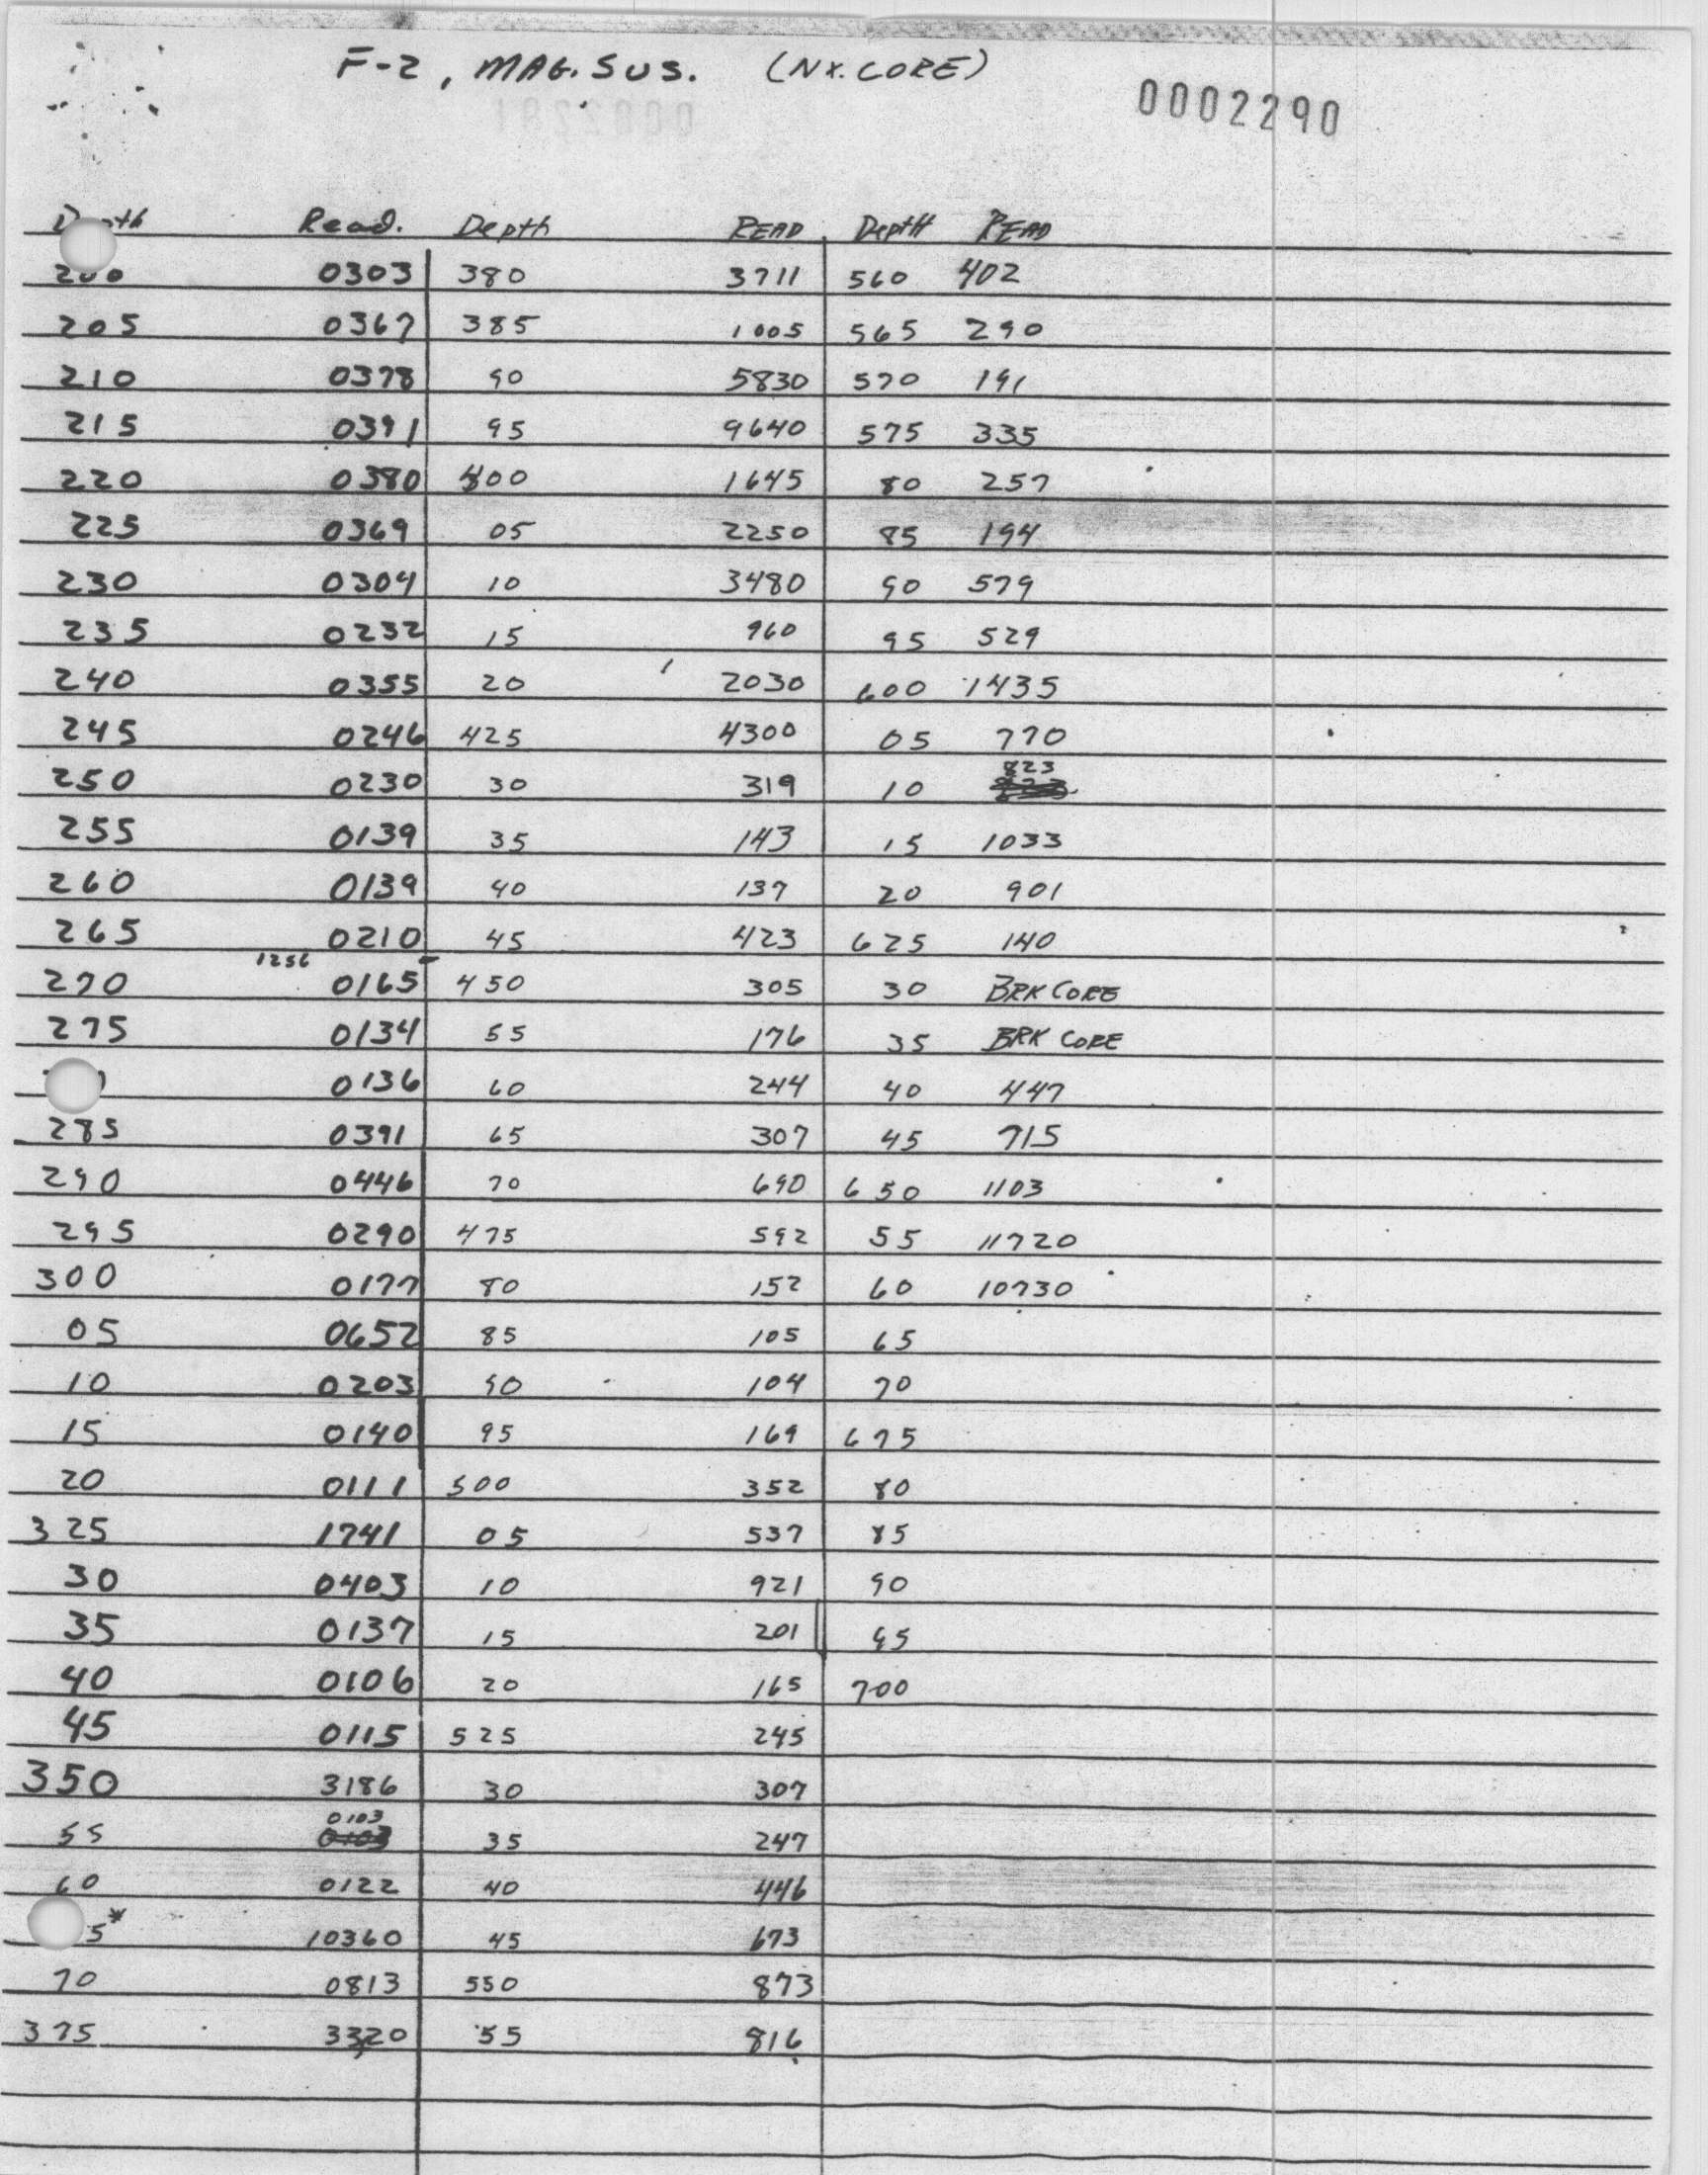 F-2, MAG. SUS. (NX. CORE)
0002290
Depth Read. Depth READ Depth READ
200 0303 380 3711 560 402
205 0367 385 1005 565 290
210 0378 90 5830 570 191
215 0391 95 9640 575 335
220 0380 400 1645 80 257
225 0369 05 2250 85 194
230 0304 10 3480 90 579
235 0232 15 960 95 529
240 0355 20 2030 600 1435
245 0246 425 4300 05 770
250 0230 30 319 10 823
255 0139 35 143 15 1033
260 0139 40 137 20 901
265 0210 45 423 625 140
1256
270 0165 450 305 30 BRK CORE
275 0134 55 176 35 BRK CORE
0136 60 244 40 447
285 0391 65 307 45 715
290 0446 70 690 650 1103
295 0290 475 592 55 11720
300 0177 80 152 60 10730
05 0652 85 105 65
10 0203 90 104 70
15 0140 95 169 675
20 0111 500 352 80
325 1741 05 537 85
30 0403 10 921 90
35 0137 15 201 95
40 0106 20 165 700
45 0115 525 245
350 3186 30 307
55 0103 35 247
60 0122 40 446
5* 10360 45 673
70 0813 550 873
375 3320 55 816